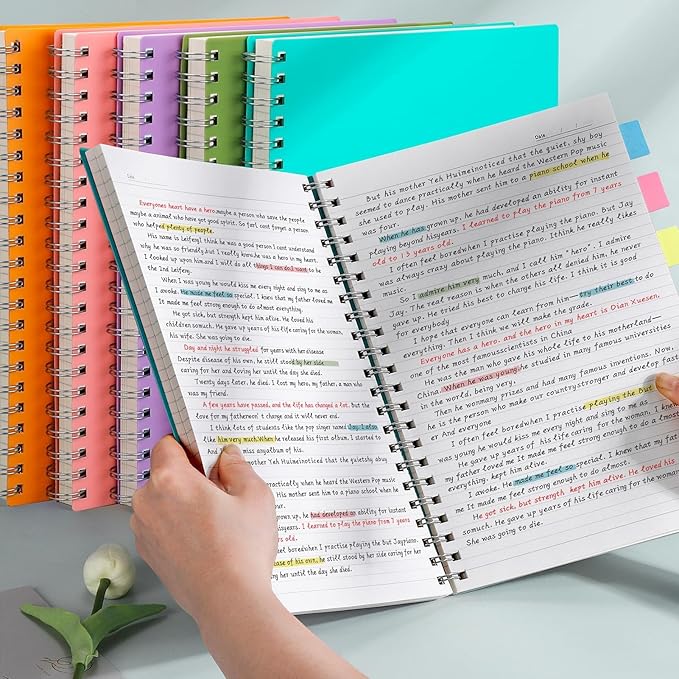 Everyones heart have a hero.maybe a person who save the people
maybe a animal who have got good spirit. So ferl, cant forget a person
who helped plenty of people.
His name is leifeng.I think he was a good person.I cant understand
why he was so friendly.And I really know,he was a hero in my heart.
I looked up upon him.and I will do all things I can do.I want to be
the 2nd leifeng.
When I was young he would kiss me every night and sing to me as
I awoke. He made me feel so special. I knew that my father loved me
It made me feel strong enough to do almost everything.
He got sick, but strength kept him alive. He loved his
children somuch. He gave up years of his life caring for the woman, his
wife. She was going to die.
Day and night he struggled for years with her disease
Despite disease of his own, he still stood by her side
caring for her and loving her until the day she died.
Twenty days later, he died. I lost my hero, my father, a man who
was my friend.
A few years have passed, and the life has changed a lot. But the
love for my fatherdon' t change and it will never end.
I think lots of students like the pop singer named Jay. I also
like him very much.When he released his first album. I started to
And I miss anyalbum of his.
mother Yeh Huimeinoticed that the quietshy guy
dance practically when he heard the Western Pop
music. His mother sent him to a piano school when he
grown up, he had developed an ability for instant
hisyears. I learned to play the piano from 7 years
old.
often feel boredwhen I practise playing the piano But Jaypiano
ease of his own, he still stood by her side caring for her
her until the day she died.
Date / /
But his mother Yeh Huimeinoticed that the quiet, shy boy
seemed to dance practically when he heard the Western Pop music
she used to play. His mother sent him to a piano school when he
was four.
When he has grown up, he had developed an ability for instant
playing beyond hisyears. I learned to play the piano from 7 years
old to 13 years old.
I often feel boredwhen I practise playing the piano. But Jay
was always crazy about playing the piano. Ithink he really likes
music.
So I admire him very much, and I call him " hero" . I admire
Jay. The real reason is when the others all denied him, he never
gave up. He tried his best to change his life. I think it is good
for everybody
I hope that everyone can learn from him— try their best to do
everything. Then I think we will make the grade.
Everyone has a hero. and the hero in my heart is Dian Xuesen.
one of the most famousscientists in China.
He was the man who gave his whole life to his motherland—
China. When he was young he studied in many famous universities
in the world, being very.
Then he wonmany prizes and had many famous inventions. Now,
he is the person who make our countrystronger and develop fast
er And everyone
I often feel boredwhen I practise playing the But
was young he would kiss me every night and sing to me as
He gave up years of his life caring for the woman.
my father loved me It made me feel strong enough to do a almost
everything. kept him alive.
I awoke. He made me feel so special. I knew that my father
It made me strong enough to do almost.
He got sick, but strength kept him alive. He loved his
somuch. He gave up years of his life caring for the woman
She was going to die.